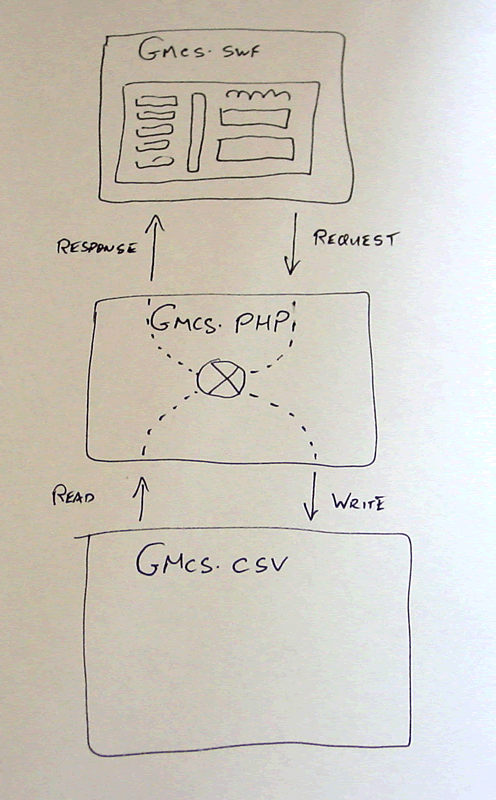 Gmcs.swf
RESPONSE
REQUEST
Gmcs.PHP
READ
WRITE
Gmcs.csv